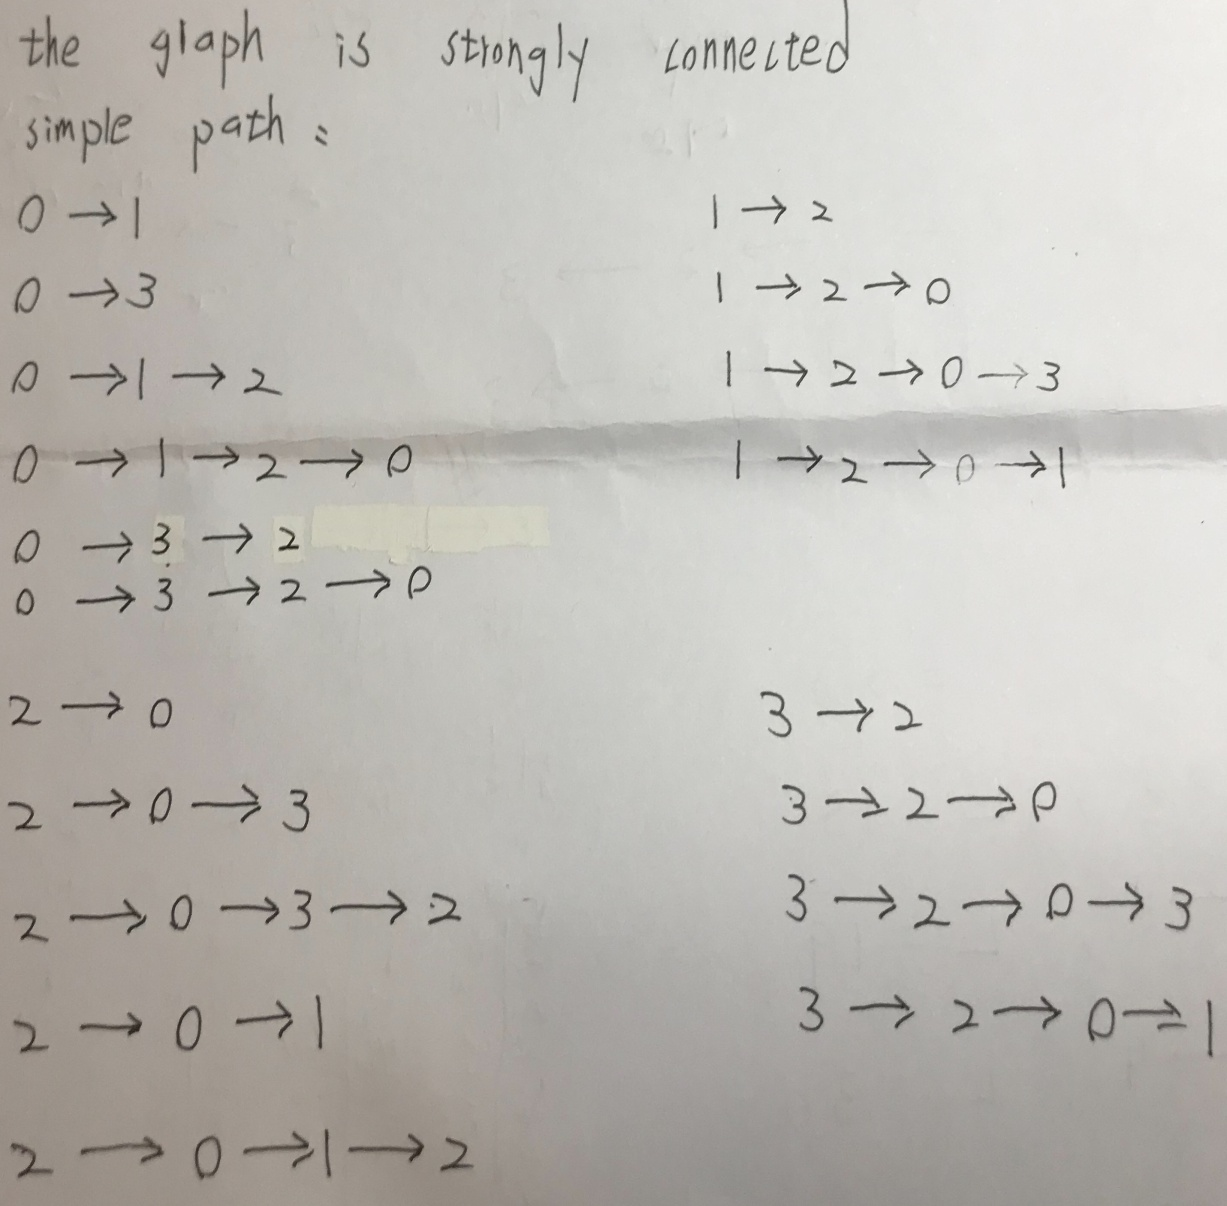 the graph is strongly connected
simple path :
0 → 1
0 → 3
0 → 1 → 2
0 → 1 → 2 → 0
0 → 3 → 2
0 → 3 → 2 → 0
1 → 2
1 → 2 → 0
1 → 2 → 0 → 3
1 → 2 → 0 → 1
2 → 0
2 → 0 → 3
2 → 0 → 3 → 2
2 → 0 → 1
2 → 0 → 1 → 2
3 → 2
3 → 2 → 0
3 → 2 → 0 → 3
3 → 2 → 0 → 1